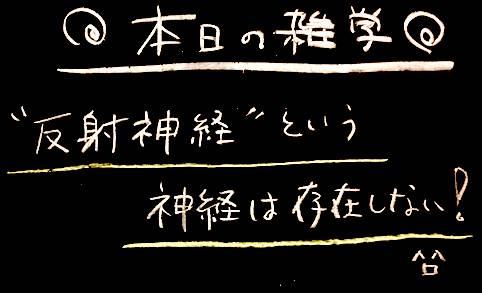 本日の雑学
"反射神経"という
神経は存在しない!